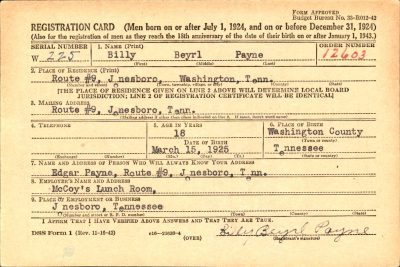 FORM APPROVED
Budget Bureau No. 33-R012-42
REGISTRATION CARD (Men born on or after July 1, 1924, and on or before December 31, 1924)
(Also for the registration of men as they reach the 18th anniversary of the date of their birth on or after January 1, 1943.)
SERIAL NUMBER 1. NAME (Print) ORDER NUMBER
W 225 Billy Beyrl Payne 12603
(First) (Middle) (Last)
2. PLACE OF RESIDENCE (Print)
Route #9, J nesboro, Washington, Tenn.
[THE PLACE OF RESIDENCE GIVEN ON LINE 2 ABOVE WILL DETERMINE LOCAL BOARD
JURISDICTION; LINE 2 OF REGISTRATION CERTIFICATE WILL BE IDENTICAL]
3. MAILING ADDRESS
Route #9, J nesboro, Tenn.
[Mailing address if other than place indicated on line 2. If same, insert word same]
4. TELEPHONE 5. AGE IN YEARS 6. PLACE OF BIRTH
18 Washington County
DATE OF BIRTH (Town or county)
March 15, 1925 Tennessee
(Exchange) (Number) (Mo.) (Day) (Yr.) (State or country)
7. NAME AND ADDRESS OF PERSON WHO WILL ALWAYS KNOW YOUR ADDRESS
Edgar Payne, Route #9, J nesboro, T nn.
8. EMPLOYER'S NAME AND ADDRESS
McCoy's Lunch Room,
9. PLACE OF EMPLOYMENT OR BUSINESS
J nesboro, Tennessee
(Number and street or R. F. D. number) (Town) (County) (State)
I AFFIRM THAT I HAVE VERIFIED ABOVE ANSWERS AND THAT THEY ARE TRUE.
DSS Form 1 (Rev. 11-16-42) (OVER) Billy Beyrl Payne
(Registrant's signature)